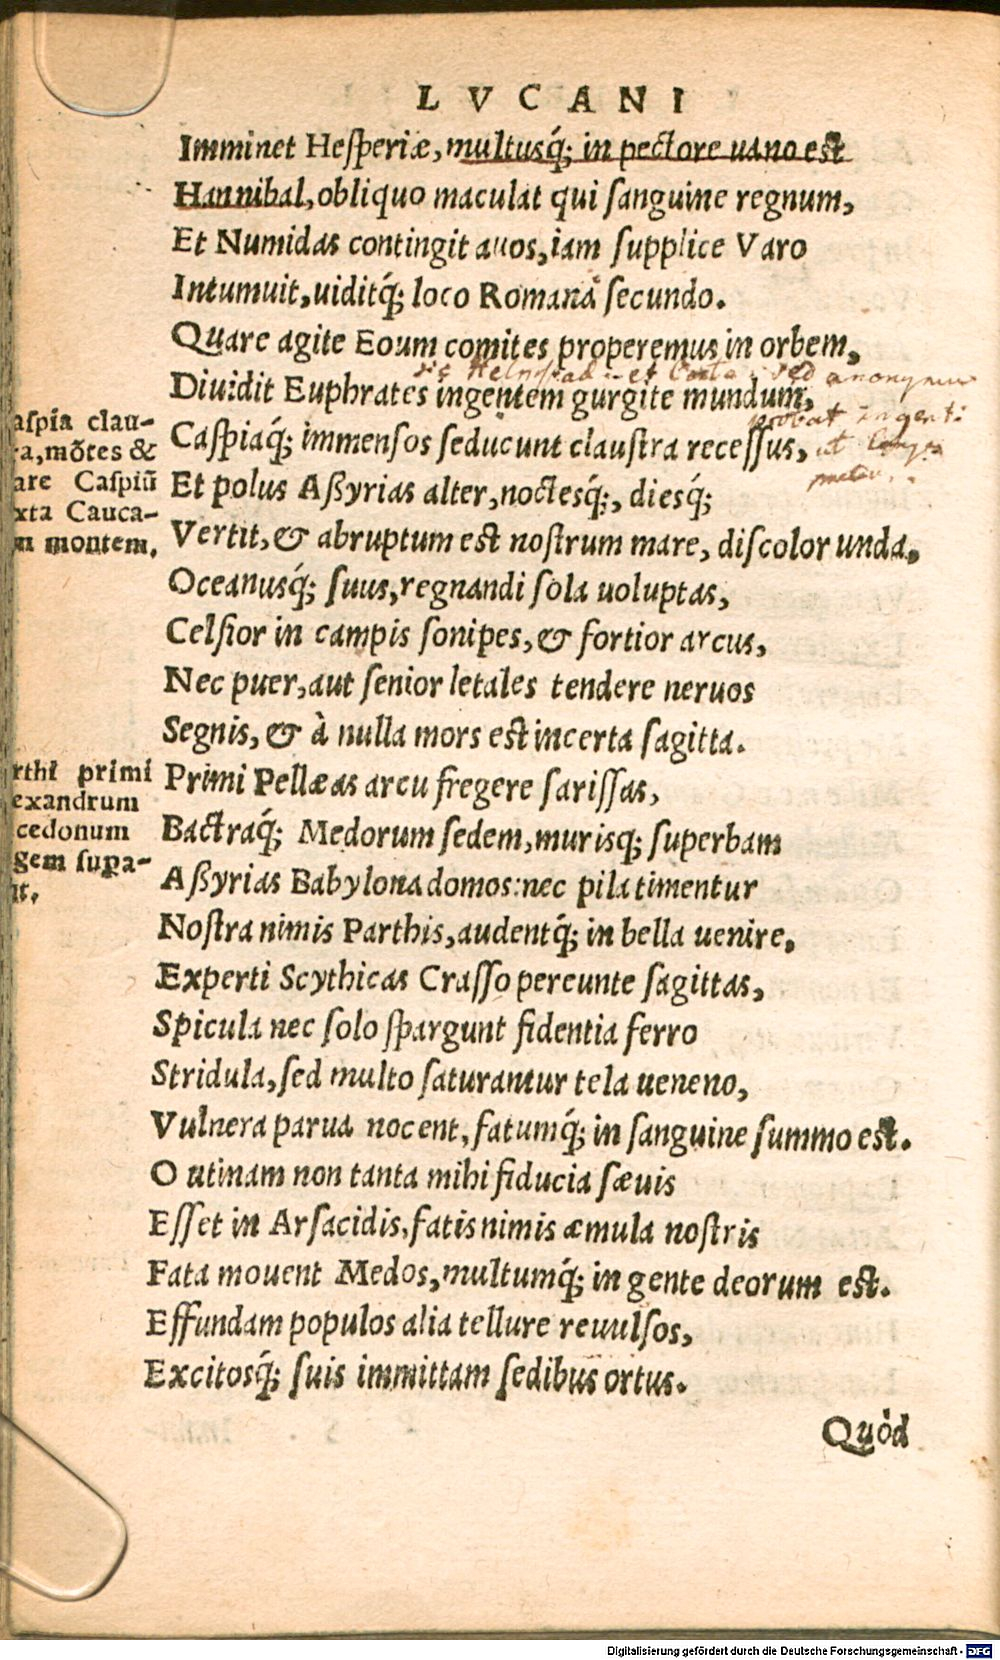 LVCANI
Imminet Hesperiæ, multusq́; in pectore uano est
Hannibal, obliquo maculat qui sanguine regnum,
Et Numidas contingit auos, iam supplice Varo
Intumuit, uiditq́; loco Romana secundo.
Quare agite Eoum comites properemus in orbem,
Diuidit Euphrates ingentem gurgite mundum,
sed anonymus
probat ingenti
ut
aspia clau-
ra, mõtes &
are Caspiũ
xta Cauca-
m montem.
Caspiaq́; immensos seducunt claustra recessus,
Et polus Aßyrias alter, noctesq́;, diesq́;
Vertit, & abruptum est nostrum mare, discolor unda,
Oceanusq́; suus, regnandi sola uoluptas,
Celsior in campis sonipes, & fortior arcus,
Nec puer, aut senior letales tendere neruos
Segnis, & à nulla mors est incerta sagitta.
rthi primi
exandrum
cedonum
gem supa-
it.
Primi Pellæas arcu fregere sarissas,
Bactraq́; Medorum sedem, murisq; superbam
Aßyrias Babylona domos: nec pila timentur
Nostra nimis Parthis, audentq́; in bella uenire,
Experti Scythicas Crasso pereunte sagittas,
Spicula nec solo spargunt fidentia ferro
Stridula, sed multo saturantur tela ueneno,
Vulnera parua nocent, fatumq́; in sanguine summo est.
O utinam non tanta mihi fiducia sæuis
Esset in Arsacidis, fatis nimis æmula nostris
Fata mouent Medos, multumq́; in gente deorum est.
Effundam populos alia tellure reuulsos,
Excitosq́; suis immittam sedibus ortus.
Quòd
Digitalisierung gefördert durch die Deutsche Forschungsgemeinschaft - DFG